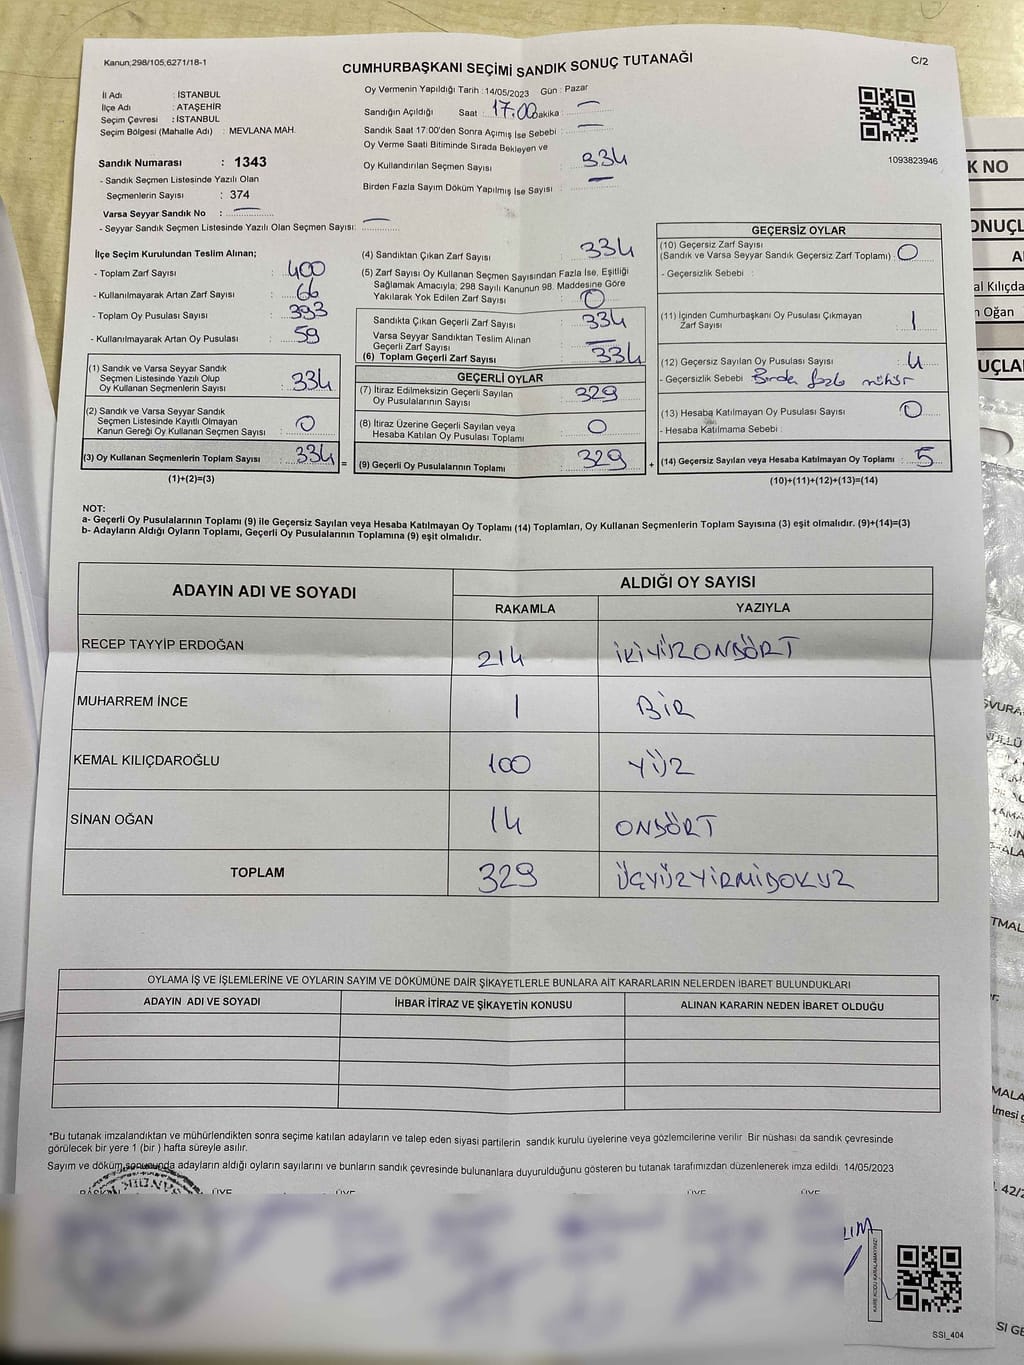 Kanun;298/105;6271/18-1
CUMHURBAŞKANI SEÇİMİ SANDIK SONUÇ TUTANAĞI
C/2
İl Adı : İSTANBUL
İlçe Adı : ATAŞEHİR
Seçim Çevresi : İSTANBUL
Seçim Bölgesi (Mahalle Adı) : MEVLANA MAH.
Sandık Numarası : 1343
- Sandık Seçmen Listesinde Yazılı Olan
Seçmenlerin Sayısı : 374
Varsa Seyyar Sandık No : —
- Seyyar Sandık Seçmen Listesinde Yazılı Olan Seçmen Sayısı: —
Oy Vermenin Yapıldığı Tarih :14/05/2023 Gün : Pazar
Sandığın Açıldığı Saat : 17.00 Dakika : —
Sandık Saat 17:00'den Sonra Açımış İse Sebebi : —
Oy Verme Saati Bitiminde Sırada Bekleyen ve
Oy Kullandırılan Seçmen Sayısı : 334
Birden Fazla Sayım Döküm Yapılmış İse Sayısı : —
1093823946
İlçe Seçim Kurulundan Teslim Alınan;
- Toplam Zarf Sayısı : 400
- Kullanılmayarak Artan Zarf Sayısı : 66
- Toplam Oy Pusulası Sayısı : 393
- Kullanılmayarak Artan Oy Pusulası : 59
(1) Sandık ve Varsa Seyyar Sandık
Seçmen Listesinde Yazılı Olup
Oy Kullanan Seçmenlerin Sayısı : 334
(2) Sandık ve Varsa Seyyar Sandık
Seçmen Listesinde Kayıtlı Olmayan
Kanun Gereği Oy Kullanan Seçmen Sayısı : 0
(3) Oy Kullanan Seçmenlerin Toplam Sayısı : 334 =
(1)+(2)=(3)
(4) Sandıktan Çıkan Zarf Sayısı : 334
(5) Zarf Sayısı Oy Kullanan Seçmen Sayısından Fazla İse, Eşitliği
Sağlamak Amacıyla; 298 Sayılı Kanunun 98. Maddesine Göre
Yakılarak Yok Edilen Zarf Sayısı : 0
Sandıkta Çıkan Geçerli Zarf Sayısı : 334
Varsa Seyyar Sandıktan Teslim Alınan
Geçerli Zarf Sayısı : —
(6) Toplam Geçerli Zarf Sayısı : 334
GEÇERLİ OYLAR
(7) İtiraz Edilmeksizin Geçerli Sayılan
Oy Pusulalarının Sayısı : 329
(8) İtiraz Üzerine Geçerli Sayılan veya
Hesaba Katılan Oy Pusulası Toplamı : 0
(9) Geçerli Oy Pusulalarının Toplamı : 329 +
GEÇERSİZ OYLAR
(10) Geçersiz Zarf Sayısı
(Sandık ve Varsa Seyyar Sandık Geçersiz Zarf Toplamı) : 0
- Geçersizlik Sebebi :
(11) İçinden Cumhurbaşkanı Oy Pusulası Çıkmayan
Zarf Sayısı : 1
(12) Geçersiz Sayılan Oy Pusulası Sayısı : 4
- Geçersizlik Sebebi : Birden fazla mühür
(13) Hesaba Katılmayan Oy Pusulası Sayısı : 0
- Hesaba Katılmama Sebebi :
(14) Geçersiz Sayılan veya Hesaba Katılmayan Oy Toplamı : 5
(10)+(11)+(12)+(13)=(14)
NOT:
a- Geçerli Oy Pusulalarının Toplamı (9) ile Geçersiz Sayılan veya Hesaba Katılmayan Oy Toplamı (14) Toplamları, Oy Kullanan Seçmenlerin Toplam Sayısına (3) eşit olmalıdır. (9)+(14)=(3)
b- Adayların Aldığı Oyların Toplamı, Geçerli Oy Pusulalarının Toplamına (9) eşit olmalıdır.
ADAYIN ADI VE SOYADI
ALDIĞI OY SAYISI
RAKAMLA YAZIYLA
RECEP TAYYİP ERDOĞAN 214 İKİYÜZONDÖRT
MUHARREM İNCE 1 BİR
KEMAL KILIÇDAROĞLU 100 YÜZ
SİNAN OĞAN 14 ONDÖRT
TOPLAM 329 ÜÇYÜZYİRMİDOKUZ
OYLAMA İŞ VE İŞLEMLERİNE VE OYLARIN SAYIM VE DÖKÜMÜNE DAİR ŞİKAYETLERLE BUNLARA AİT KARARLARIN NELERDEN İBARET BULUNDUKLARI
ADAYIN ADI VE SOYADI İHBAR İTİRAZ VE ŞİKAYETİN KONUSU ALINAN KARARIN NEDEN İBARET OLDUĞU
*Bu tutanak imzalandıktan ve mühürlendikten sonra seçime katılan adayların ve talep eden siyasi partilerin sandık kurulu üyelerine veya gözlemcilerine verilir. Bir nüshası da sandık çevresinde
görülecek bir yere 1 (bir ) hafta süreyle asılır.
Sayım ve döküm sonucunda adayların aldığı oyların sayılarını ve bunların sandık çevresinde bulunanlara duyurulduğunu gösteren bu tutanak tarafımızdan düzenlenerek imza edildi. 14/05/2023
SANDIK
ÜYE ÜYE ÜYE ÜYE
KARE KODU KARALAMAYINIZ!
SSI_404
K NO
ONUÇL
al Kılıçda
n Oğan
UÇLA